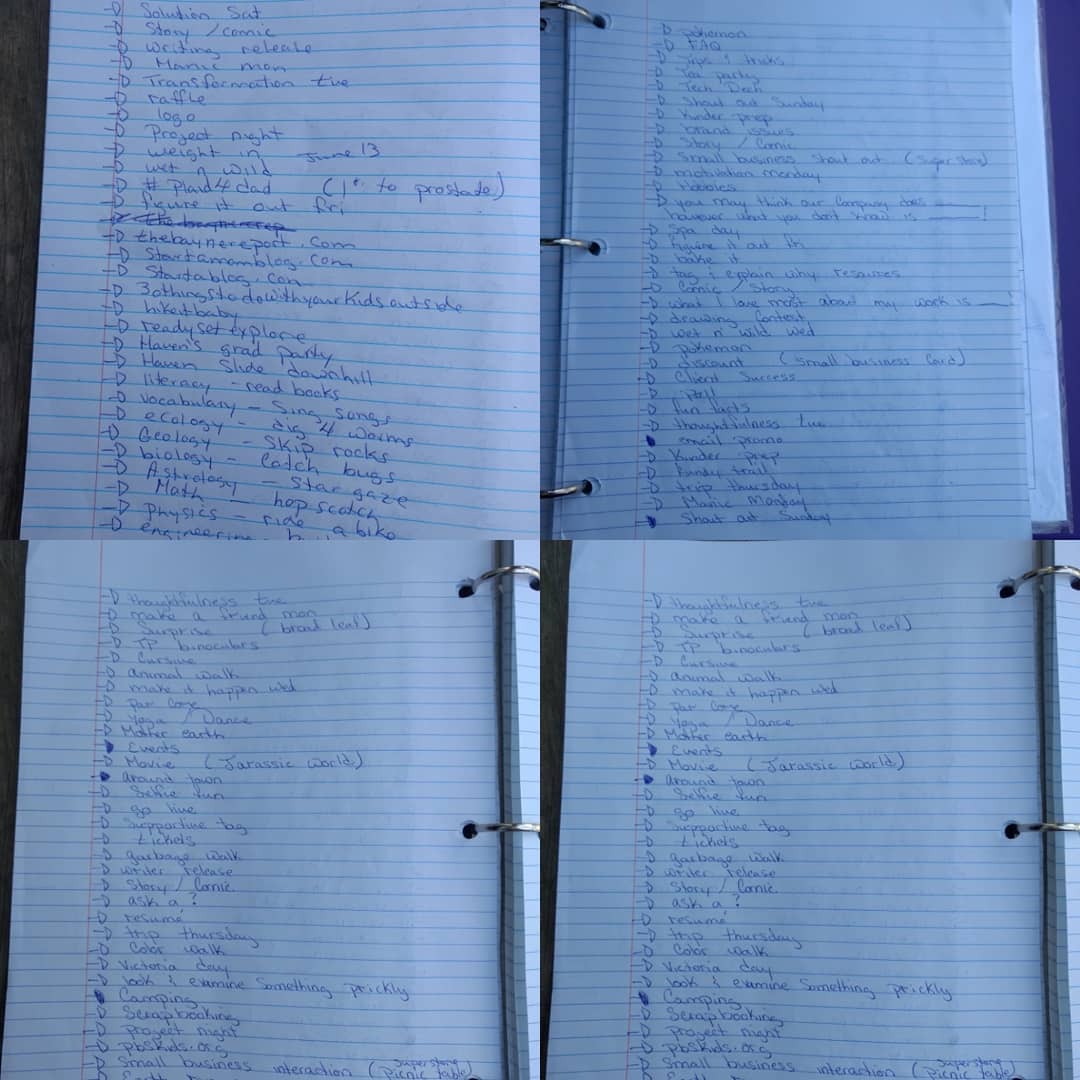 Solution Sat
Story / comic
writing release
Manic mon
Transformation tue
raffle
logo
Project night
weight in June 13
wet n wild
# Plaid4dad (1st to prostate)
figure it out fri
thebaynereport.com
Startamomblog.com
Startablog.com
30thingstodowithyourkidsoutside
hikeitbaby
readysetexplore
Haven's grad party
Haven Slide downhill
literacy - read books
vocabulary - Sing songs
ecology - dig 4 worms
Geology - Skip rocks
biology - Catch bugs
Astrology - Star gaze
Math - hop scotch
Physics - ride a bike
engineering
pokemon
FAQ
Tips & tricks
Tea party
Tech Deck
Shout out Sunday
Kinder prep
brand issues
Story / Comic
Small business Shout out (Super store)
motivation monday
Hobbies
you may think our Company does ____
however what you don't know is ____!
Spa day
figure it out fri
bake it
tag & explain why resources
Comic / Story
what I love most about my work is ____!
drawing Contest
wet n' wild wed
pokemon
discount (Small business Card)
Client Success
poll
fun facts
thoughtfulness tue
email promo
Kinder prep
trail
trip thursday
Manic Monday
Shout out Sunday
thoughtfulness tue
make a friend mon
Surprise (broad leaf)
TP binoculars
Cursive
animal walk
make it happen wed
Par Core
Yoga / Dance
Mother earth
Events
Movie (Jarassic world)
around town
Selfie fun
go live
Supportive tag
tickets
garbage walk
writer release
Story / Comic
ask a ?
resumé
trip thursday
Color walk
Victoria day
look & examine Something prickly
Camping
Scrapbooking
project night
pbskids.org
Small business interaction (Superstore picnic table)
thoughtfulness tue
make a friend mon
Surprise (broad leaf)
TP binoculars
Cursive
animal walk
make it happen wed
Par Core
Yoga / Dance
Mother earth
Events
Movie (Jarassic world)
around town
Selfie fun
go live
Supportive tag
tickets
garbage walk
writer release
Story / Comic
ask a ?
resumé
trip thursday
Color walk
Victoria day
look & examine Something prickly
Camping
Scrapbooking
project night
pbskids.org
Small business interaction (Superstore picnic table)